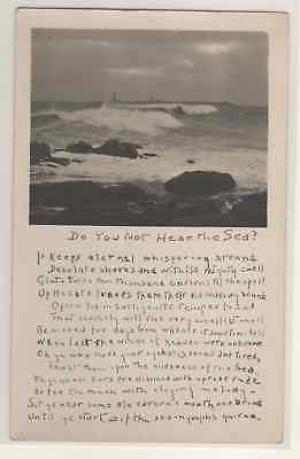 Do You Not Hear the Sea?
It Keeps eternal whisperings around
Desolate shores and with its mighty swell
Gluts twice ten thousand caverns till the spell
Of Hecate leaves them their old shadowy sound
Often tis in such gentle temper found
That scarcely will the very smallest shell
Be moved for days from whence it sometime fell
When last the winds of heaven were unbound
Oh ye who have your eyeballs vexed and tired
Feast them upon the wideness of the Sea
Oh ye whose ears are dinned with uproar rude
Or fed too much with cloying melody
Sit ye near some old caverns mouth and brood
Until ye start as if the sea nymphs quired